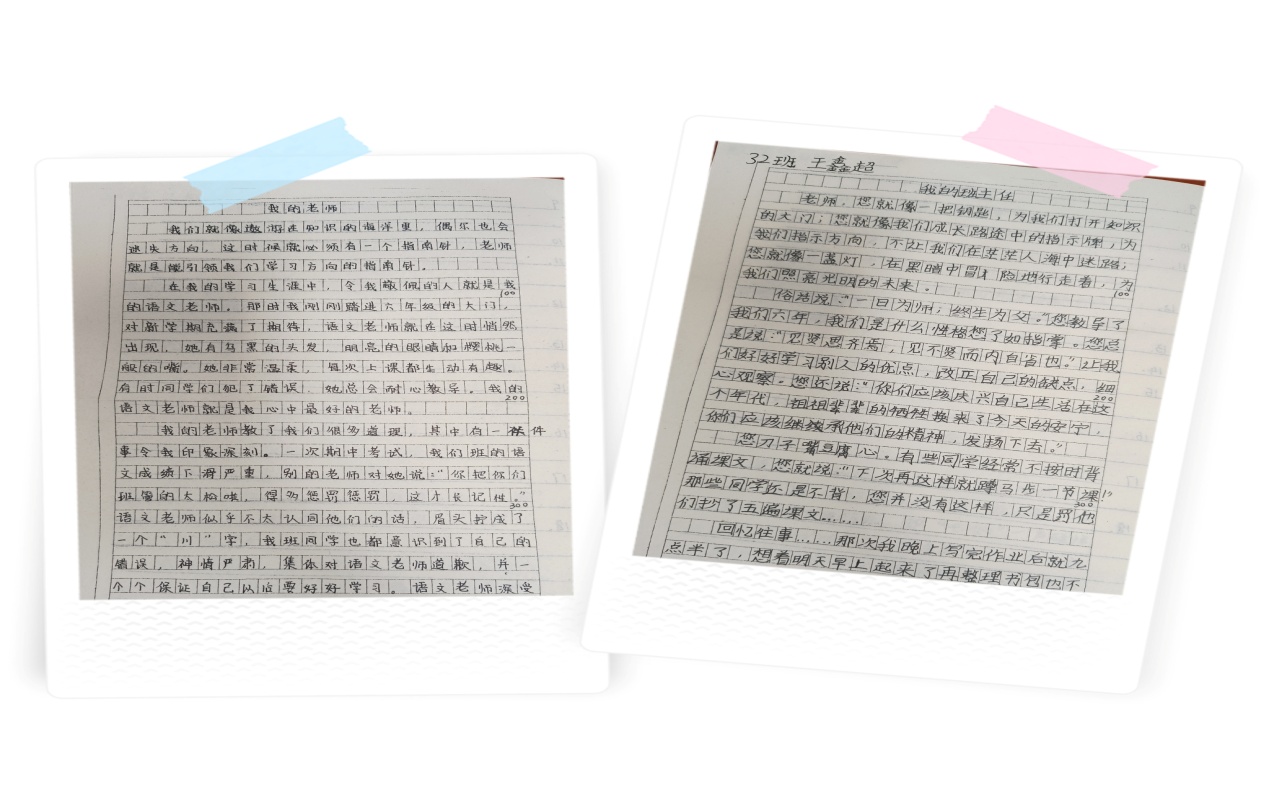 我的老师
我们就像遨游在知识的海洋里，偶尔也会
迷失方向，这时候就必须有一个指南针，老师
就是能引领我们学习方向的指南针。
在我的学习生涯中，令我敬佩的人就是我
100
的语文老师。那时我刚刚踏进六年级的大门，
对新学期充满了期待，语文老师就在这时悄然
出现，她有乌黑的头发，明亮的眼睛和樱桃一
般的嘴。她非常温柔，每次上课都生动有趣。
有时同学们犯了错误，她总会耐心教导。我的
200
语文老师就是我心中最好的老师。
我的老师教了我们很多道理，其中有一件
事令我印象深刻。一次期中考试，我们班的语
文成绩下滑严重，别的老师对她说：“你把你们
班馒的太松啦，得多惩罚惩罚，这才长记性。”
300
语文老师似乎不太认同他们的话，眉头拧成了
一个“川”字，我班同学也都意识到了自己的
错误，神情严肃，集体对语文老师道歉，并一
个个保证自己从后要好好学习。语文老师深受
32班 王鑫超
我的班主任
老师，您就像一把钥匙，为我们打开知识
的大门；您就像我们成长路途中的指示牌，为
我们指示方向，不让我们在茫茫人海中迷路；
您就像一盏灯，在黑暗中冒险地行走着，为
100
我们照亮光明的未来。
俗话说：“一日为师，终生为父。”您教导了
我们六年，我们是什么性格您了如指掌。您总
是说：“见贤思齐焉，见不贤而内自省也。”让我
们好好学习别人的优点，改正自己的缺点，细
200
心观察。您还说：“你们应该庆兴自己生活在这
个年代，祖祖辈辈的牺牲换来了今天的安宁，
你们应该继续承他们的精神，发扬下去。”
您刀子嘴豆腐心。有些同学经常不按时背
诵课文，您就说：“下次再这样就蹲马步一节课！”
300
那些同学还是不背，您并没有这样，只是罚他
们抄了五遍课文……
回忆往事……那次我晚上写完作业后就九
点半了，想着明天早上起来了再整理书包也不